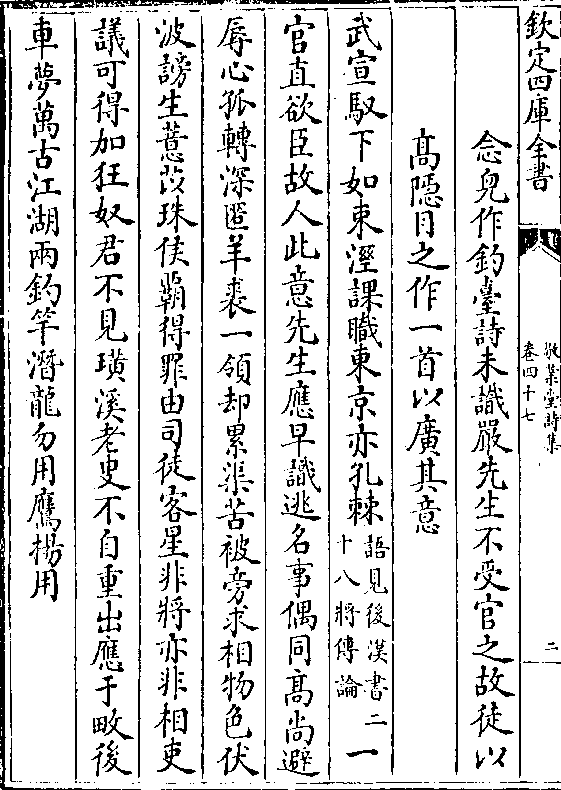 欽定四庫全書
敬業堂詩集
卷四十七
二
念兒作釣臺詩未識嚴先生不受官之故徒以
髙隱目之作一首以廣其意
武宣馭下如束溼課職東京亦孔棘語見後漢書二十八將傳論一
官直欲臣故人此意先生應早識逃名事偶同髙尚避
辱心孤轉深匿羊裘一領却累渠苦被旁求相物色伏
波謗生薏苡珠侯覇得罪由司徒客星非將亦非相吏
議可得加狂奴君不見璜溪老叟不自重出應于畋後
車夢萬古江湖兩釣竿潛龍勿用鷹揚用